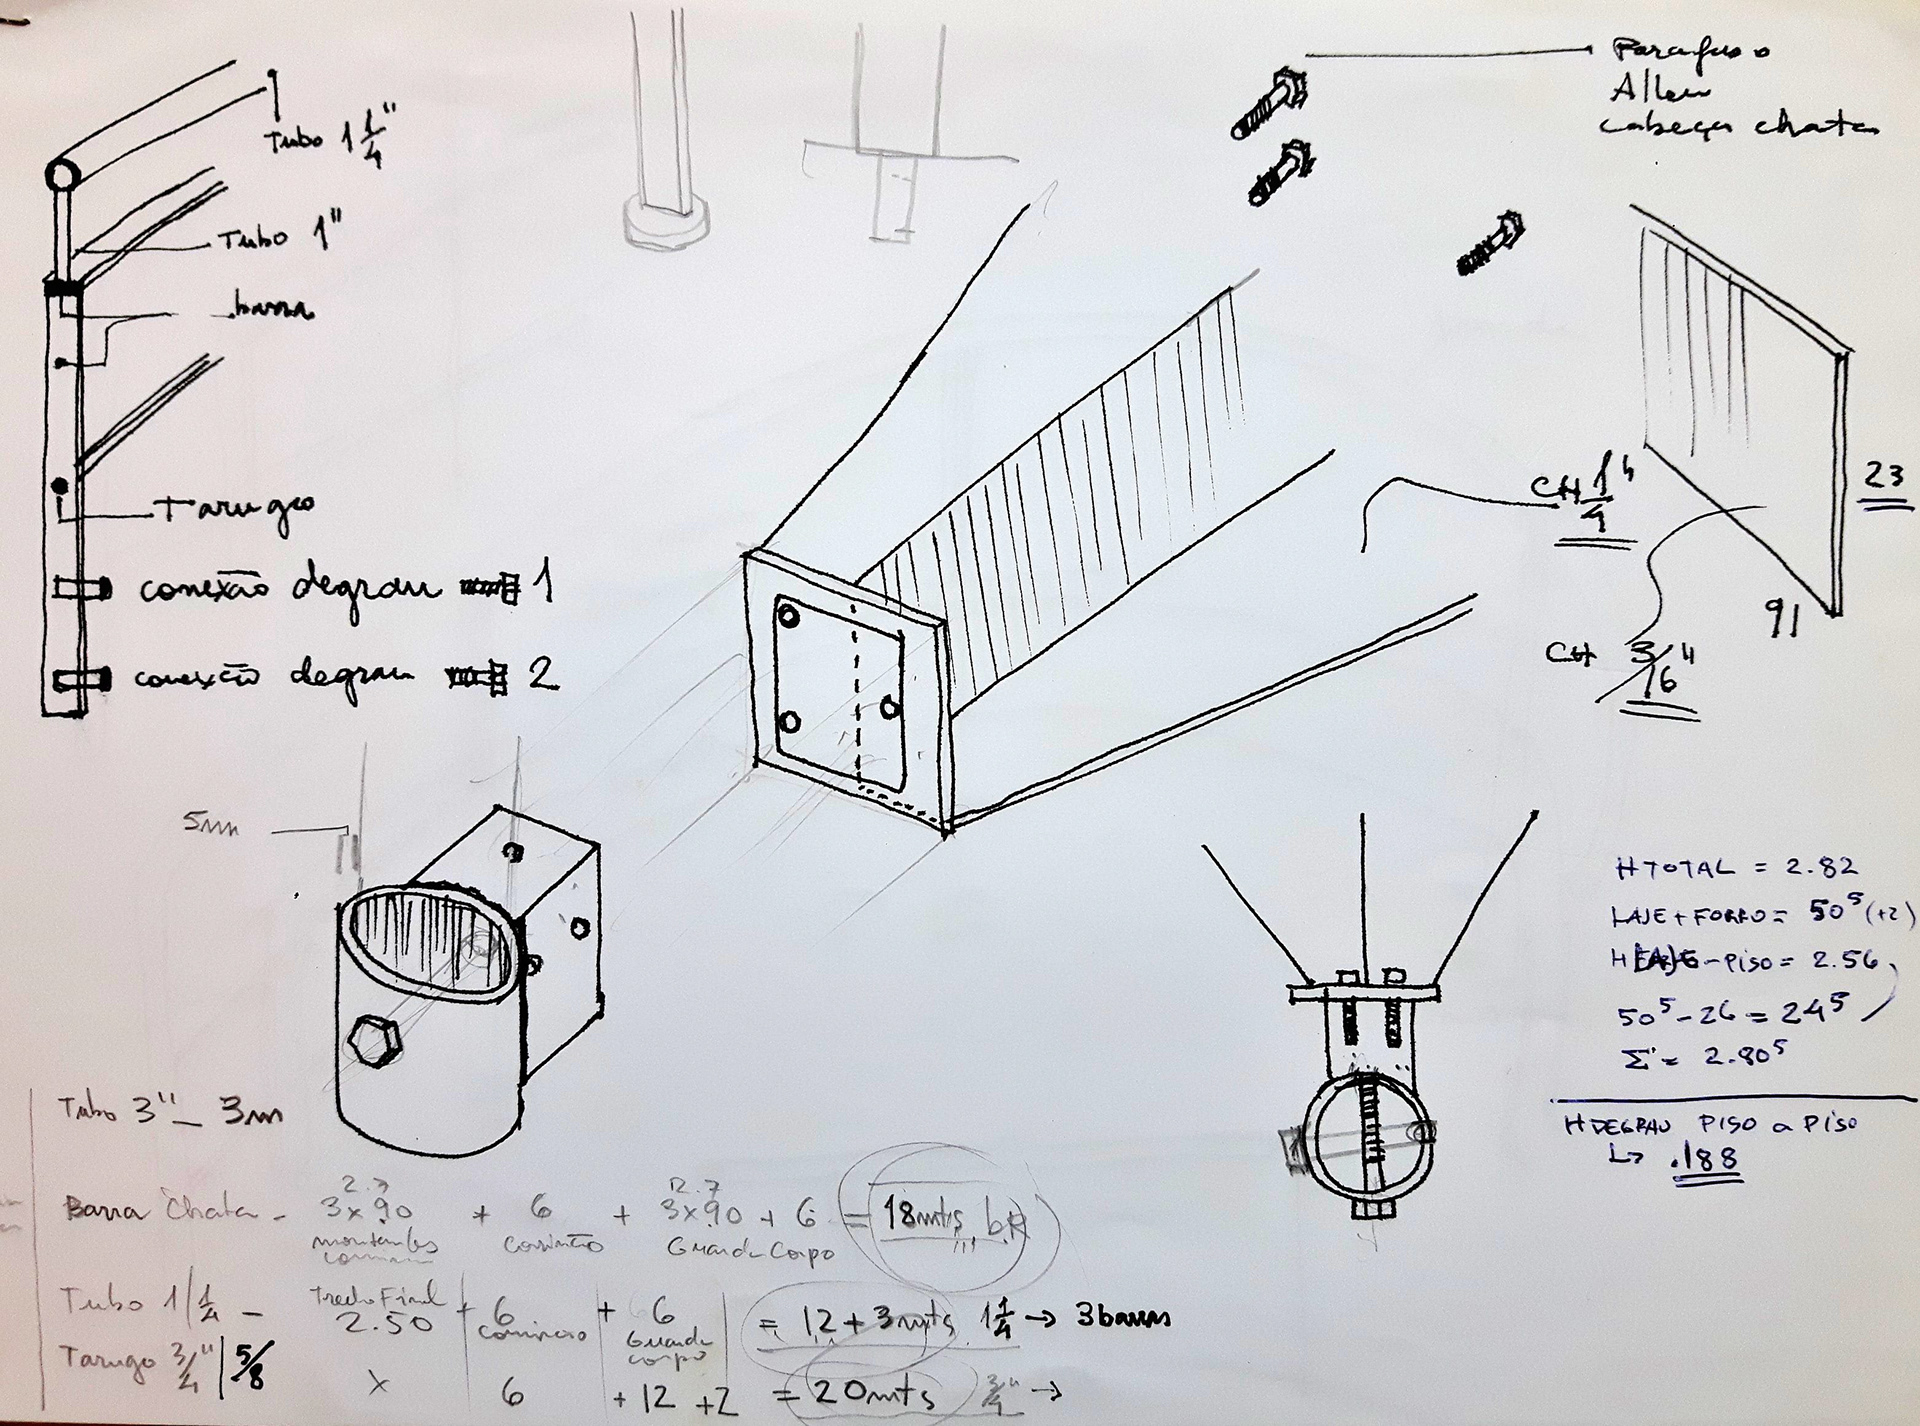 Parafuso
Allen
cabeça chata
Tubo 1 1/4"
Tubo 1"
barra
Tarugo
conexão degrau 1
conexão degrau 2
CH 1/4"
23
91
CH 3/16"
5mm
H TOTAL = 2.82
LAJE + FORRO = 50⁵ (+2)
H LAJE - PISO = 2.56
50⁵ - 26 = 24⁵
Σ = 2.80⁵
H DEGRAU PISO a PISO
↳ .188
Tubo 3" - 3m
2.7 2.7
Barra Chata - 3x90 + 6 + 3x90 + 6 = 18mts
montantes corrimão Guarda Corpo
Tubo 1 1/4 - Trecho Final 2.50 + 6 + 6 = 12 + 3mts 1 1/4 → 3 barras
corrimão Guarda corpo
Tarugo 3/4" | 5/8 x 6 + 12 + 2 = 20mts 3/4" →